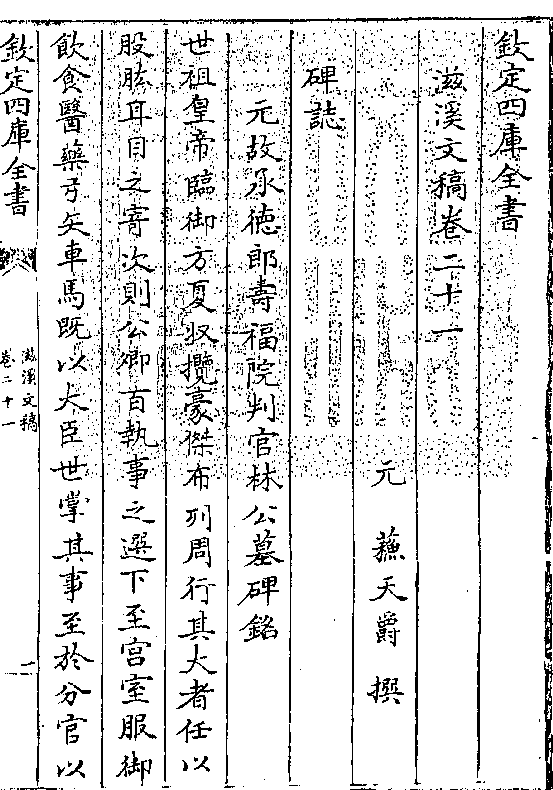 欽定四庫全書
滋溪文稿卷二十一
元 蘇天爵 撰
碑誌
元故承德郎壽福院判官林公墓碑銘
世祖皇帝臨御方夏收攬豪傑布列周行其大者任以
股肱耳目之寄次則公卿百執事之選下至宮室服御
飲食醫藥弓矢車馬既以大臣世掌其事至於分官以
欽定四庫全書
滋溪文稿
卷二十一
一